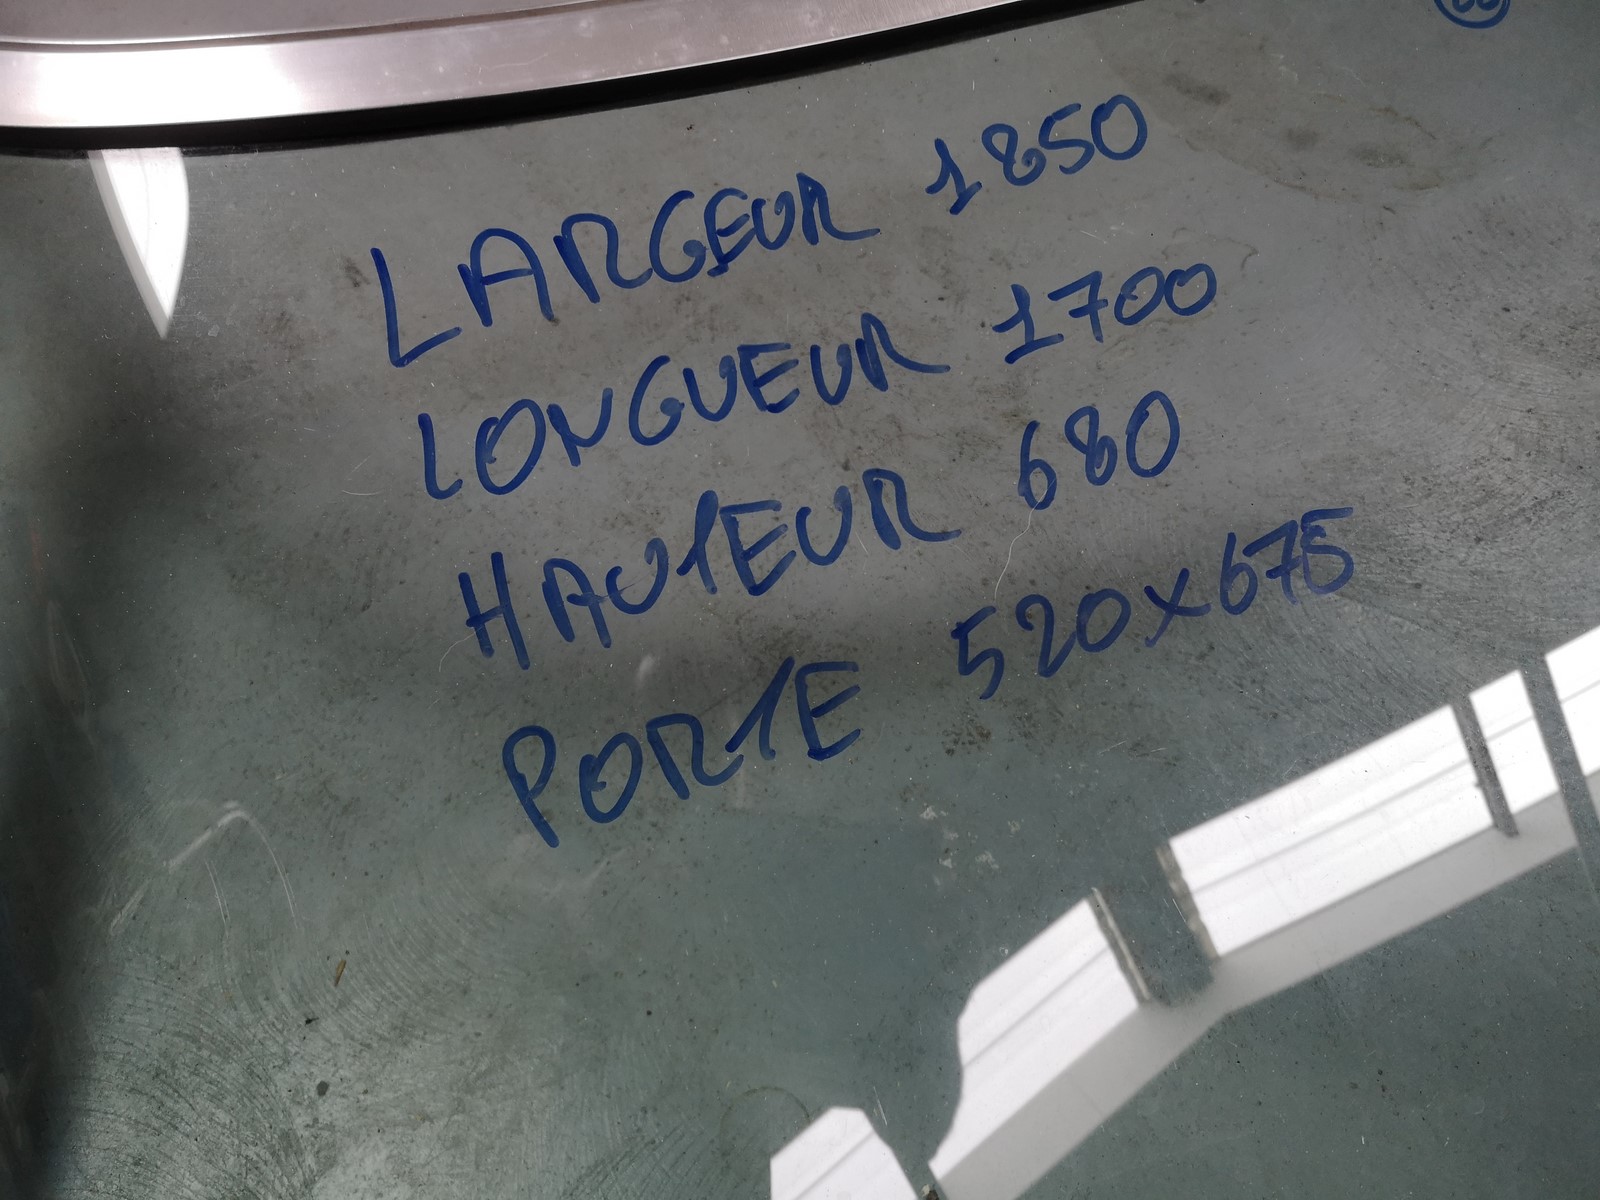 LARGEUR 1850
LONGUEUR 1700
HAUTEUR 680
PORTE 520x675